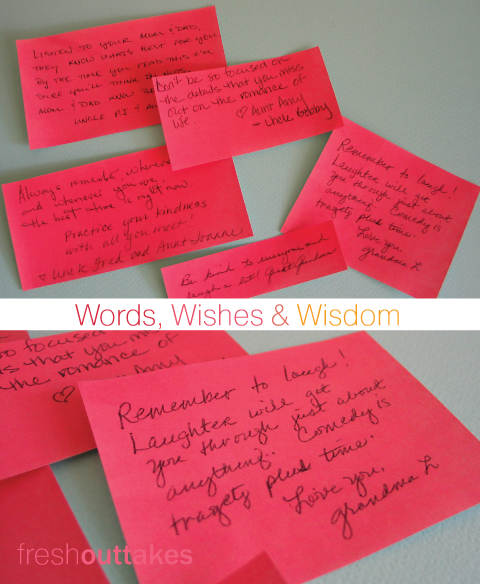 LISTEN TO YOUR MOM & DAD,
THEY KNOW WHAT'S BEST FOR YOU
BY THE TIME YOU READ THIS I'M
SURE YOU'LL THINK
MOM & DAD KNOW
UNCLE
Don't be so focused on
the details that you miss
out on the romance of
life...
♡ Aunt Amy
- Uncle Bobby
Always remember, wherever
and whenever you are,
the best time is right now.
Practice your kindness
with all you meet!
♡ Uncle Fred and Aunt Joanne
Remember to laugh!
Laughter will get
you through just about
anything. Comedy is
tragety plus time.
Love you,
grandma L
Be kind to everyone and
laugh a lot! Great Grandma
Words, Wishes & Wisdom
so focused
ls that you miss
the romance of
♡ Amy
Remember to laugh!
Laughter will get
you through just about
anything. Comedy is
tragety plus time.
Love you,
grandma L
freshouttakes